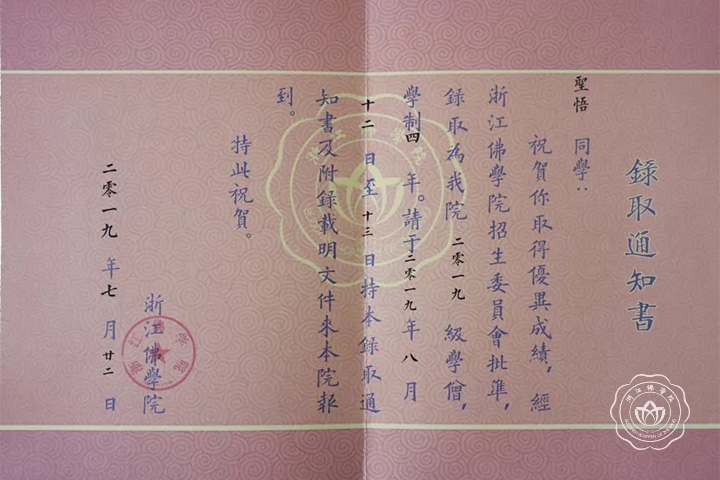 錄取通知書
聖悟 同學：
祝賀你取得優異成績，經
浙江佛學院招生委員會批準，
錄取為我院 二零一九 級學僧，
學制四 年。請于二零一九年 八 月
十二 日至 十三 日持本錄取通
知書及附錄載明文件來本院報
到。
持此祝賀。
浙江佛學院
二零一九 年七 月 廿二 日
浙江佛學院